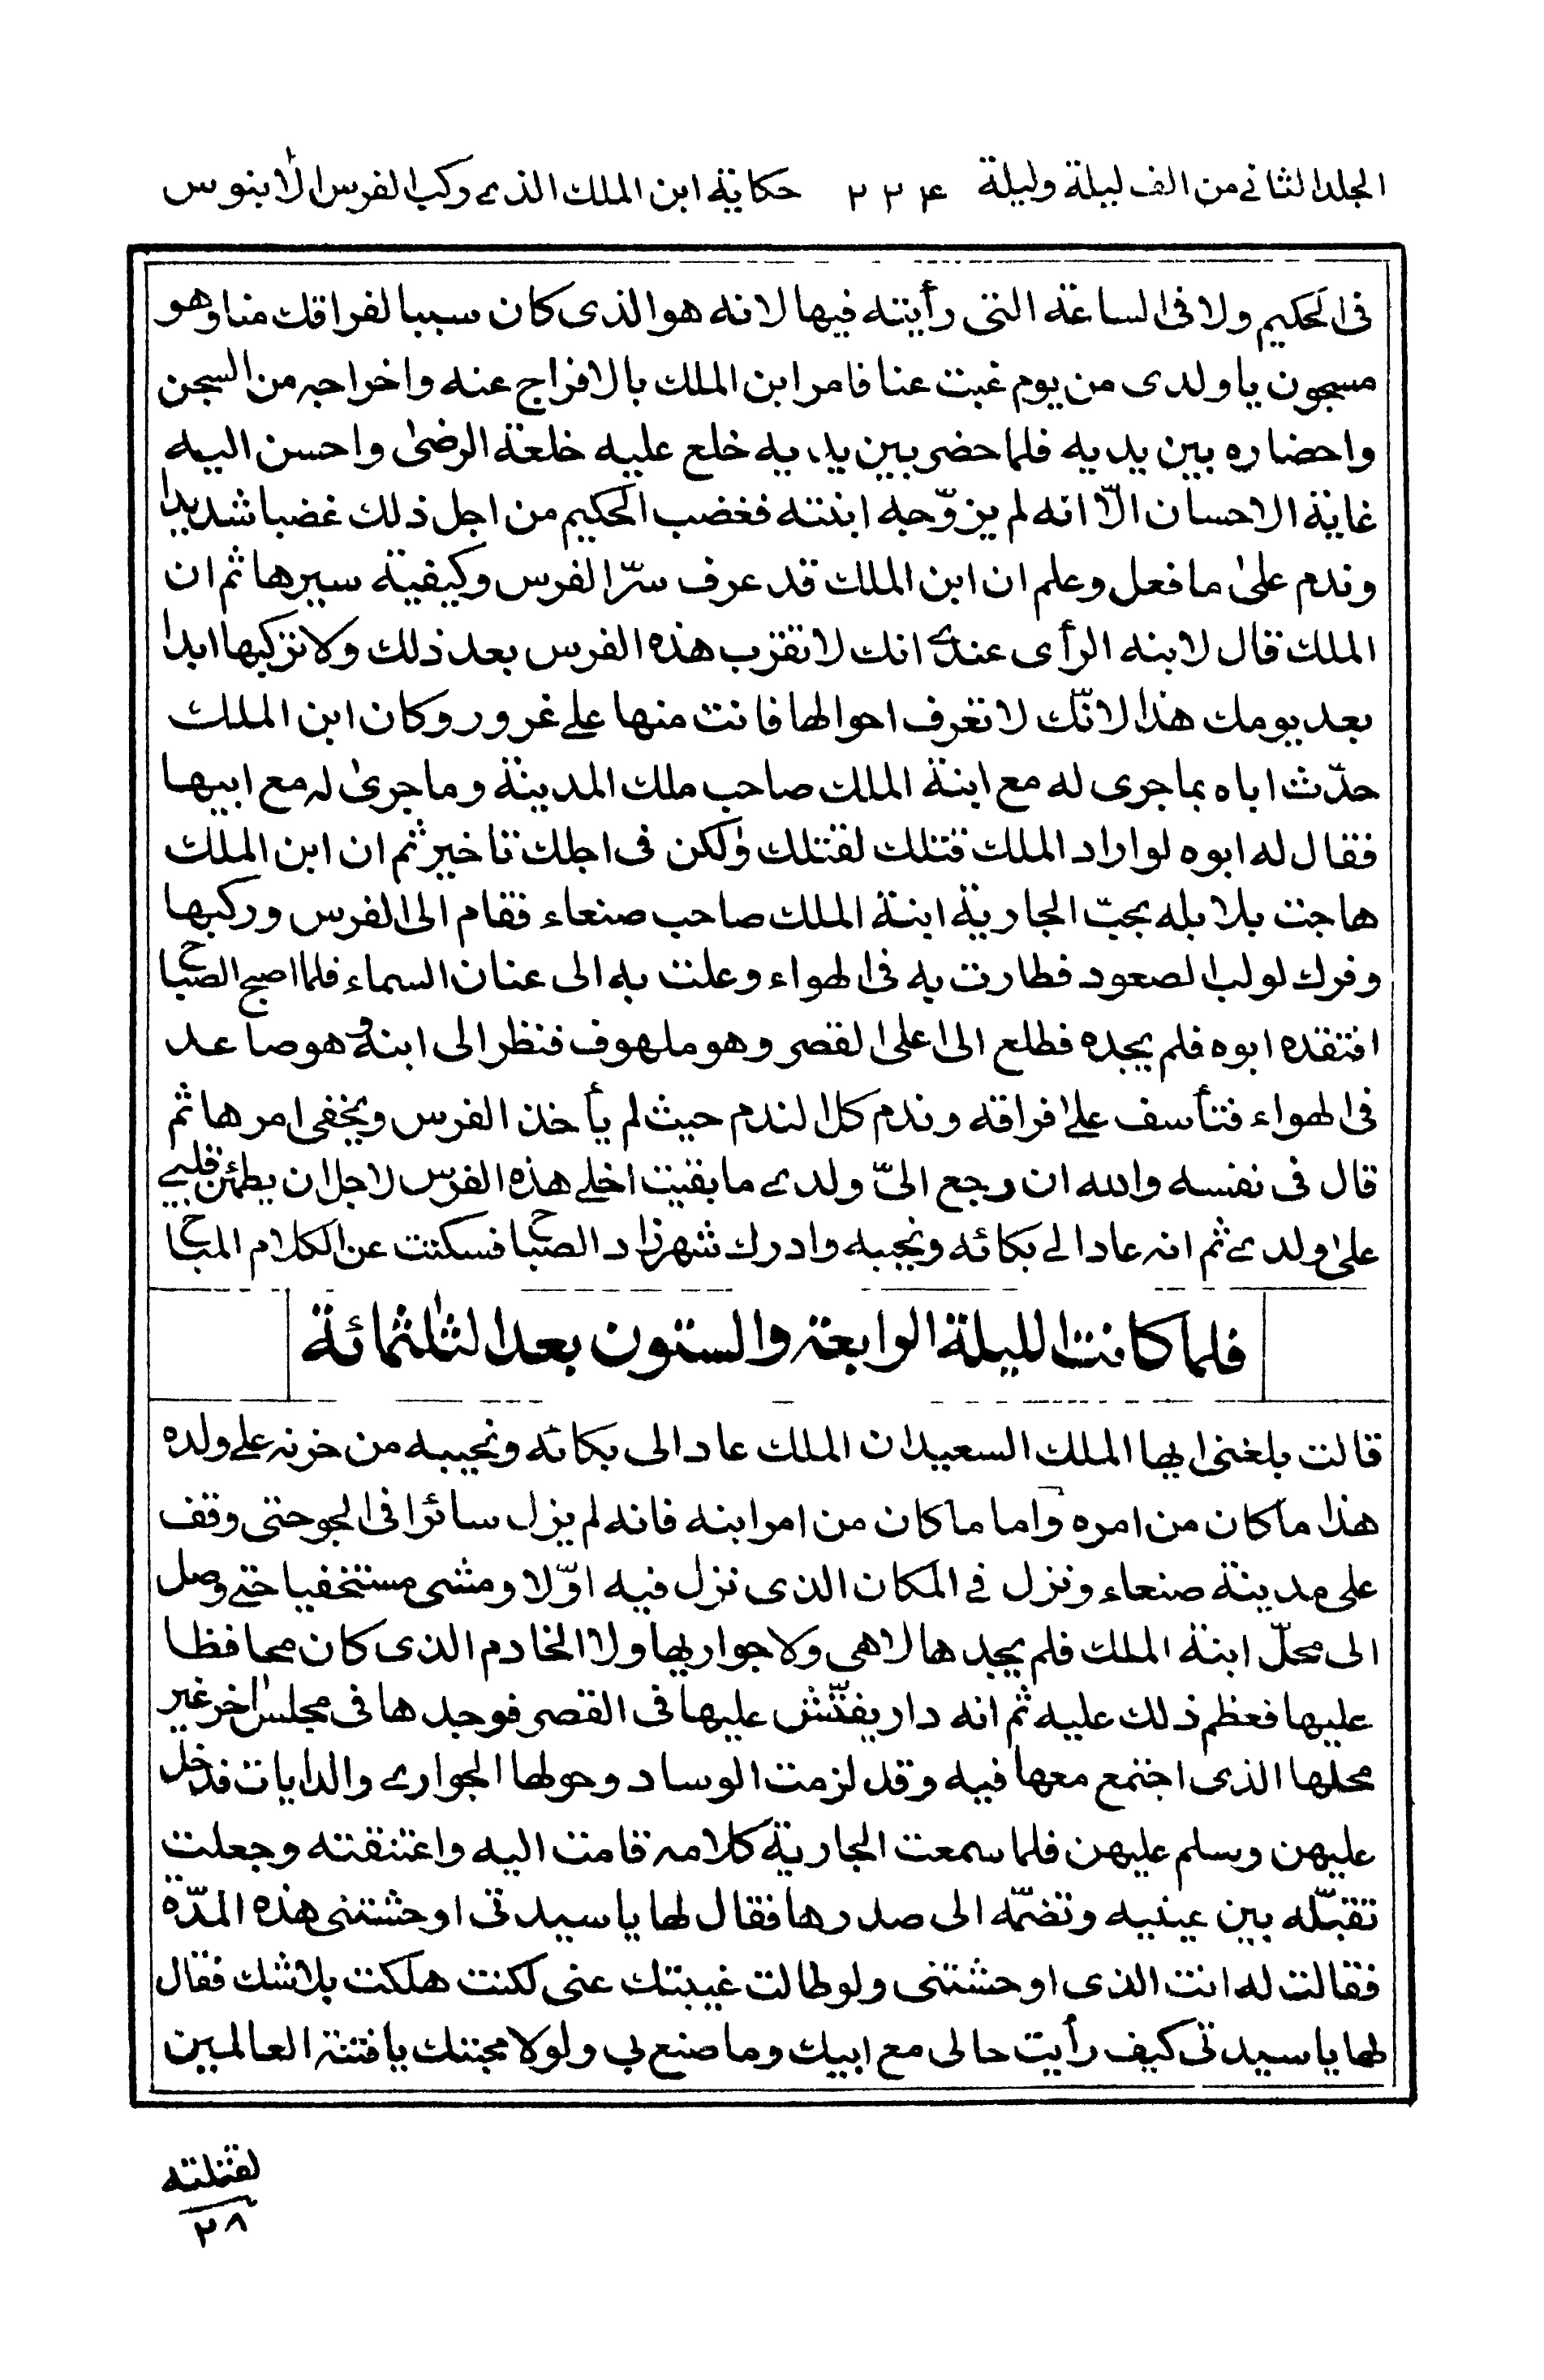 الجلد الثاني من الف ليلة وليلة ٢٢۴ حكاية ابن الملك الذي ركب الفرس الأبنوس
فى الحكيم ولا فى الساعة التى رأيته فيها لانه هو الذى كان سببا لفراقك منا وهو
مسجون يا ولدى من يوم غبت عنا فامر ابن الملك بالافراج عنه واخراجه من السجن
واحضاره بين يديه فلما حضر بين يديه خلع عليه خلعة الرضىٰ واحسن اليه
غاية الاحسان الّا انه لم يزوّجه ابنته فغضب الحكيم من اجل ذلك غضبا شديدا
وندم علىٰ ما فعل وعلم ان ابن الملك قد عرف سرّ الفرس وكيفية سيرها ثم ان
الملك قال لابنه الرأى عندي انك لا تقرب هذه الفرس بعد ذلك ولا تركبها ابدا
بعد يومك هذا لانّك لا تعرف احوالها فانت منها على غرور وكان ابن الملك
حدّث اباه بما جرى له مع ابنة الملك صاحب ملك المدينة وما جرىٰ له مع ابيها
فقال له ابوه لو اراد الملك قتلك لقتلك ولكن فى اجلك تاخير ثم ان ابن الملك
هاجت بلابله بحبّ الجارية ابنة الملك صاحب صنعاء فقام الى الفرس وركبها
وفرك لولب الصعود فطارت به فى الهواء وعلت به الى عنان السماء فلما اصبح الصباح
افتقده ابوه فلم يجده فطلع الى اعلى القصر وهو ملهوف فنظر الى ابنه وهو صاعد
فى الهواء فتأسف على فراقه وندم كل الندم حيث لم يأخذ الفرس ويخفى امرها ثم
قال فى نفسه والله ان رجع الىّ ولدي ما بقيت اخلي هذه الفرس لاجل ان يطمئن قلبي
علىٰ ولدي ثم انه عاد الى بكائه ونحيبه وادرك شهرزاد الصباح فسكتت عن الكلام المباح
فلما كانت الليلة الرابعة والستون بعد الثلٰثمائة
قالت بلغنى ايها الملك السعيد ان الملك عاد الى بكائه ونحيبه من حزنه على ولده
هذا ما كان من امره واما ما كان من امر ابنه فانه لم يزل سائرا فى الجو حتى وقف
على مدينة صنعاء ونزل في المكان الذى نزل فيه اوّلا ومشى مستخفيا حتى وصل
الى محلّ ابنة الملك فلم يجدها لا هى ولا جواريها ولا الخادم الذى كان محافظا
عليها فعظم ذلك عليه ثم انه دار يفتّش عليها فى القصر فوجدها فى مجلس اٰخر غير
محلها الذى اجتمع معها فيه وقد لزمت الوساد وحولها الجواري والدايات فدخل
عليهن وسلم عليهن فلما سمعت الجارية كلامه قامت اليه واعتنقته وجعلت
تقبّله بين عينيه وتضمّه الى صدرها فقال لها يا سيدتى اوحشتنى هذه المدّة
فقالت له انت الذى اوحشتنى ولو طالت غيبتك عنى لكنت هلكت بلا شك فقال
لها يا سيدتى كيف رأيت حالى مع ابيك وما صنع بى ولولا محبتك يا فتنة العالمين
لقتلته
٢٨